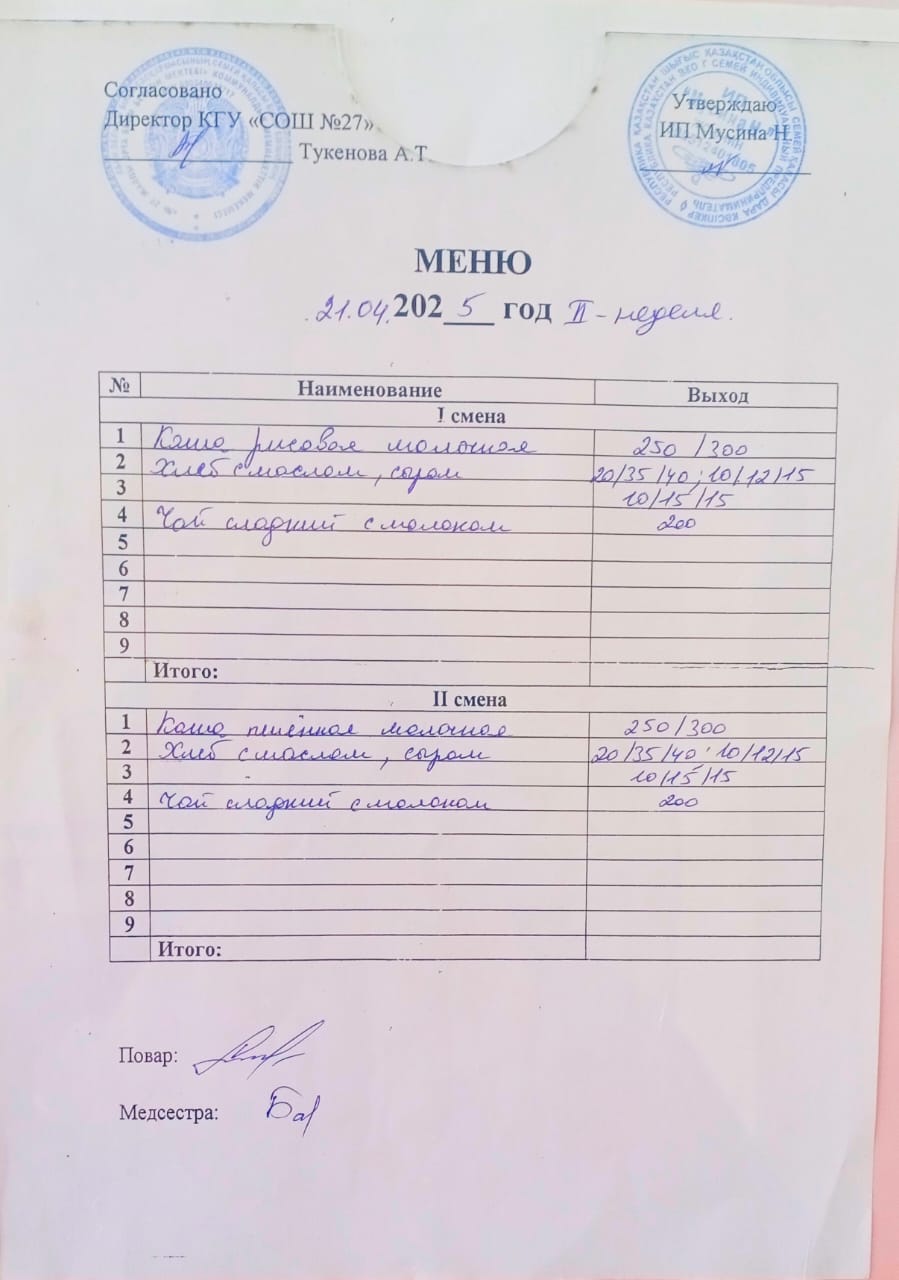 Согласовано
Директор КГУ «СОШ №27»
Тукенова А.Т.
Утверждаю
ИП Мусина Н.
МЕНЮ
21.04.2025 год II - неделя.
№ Наименование Выход
I смена
1 Каша рисовая молочная 250 /300
2 Хлеб с маслом, сыром 20/35/40; 10/12/15
3 10/15/15
4 Чай сладкий с молоком 200
5
6
7
8
9
Итого:
II смена
1 Каша пшённая молочная 250/300
2 Хлеб с маслом, сыром 20/35/40; 10/12/15
3 10/15/15
4 Чай сладкий с молоком 200
5
6
7
8
9
Итого:
Повар:
Медсестра: